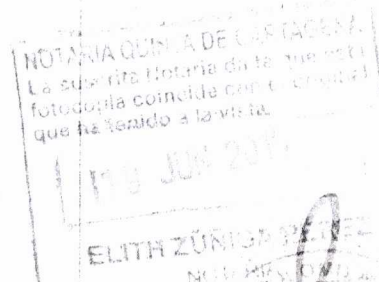 NOTARIA QUINTA DE CARTAGENA
La suscrita Notaria da fe que esta
fotocopia coincide con el original
que ha tenido a la vista.
JUN 201
ELITH ZÚÑIGA PEREZ